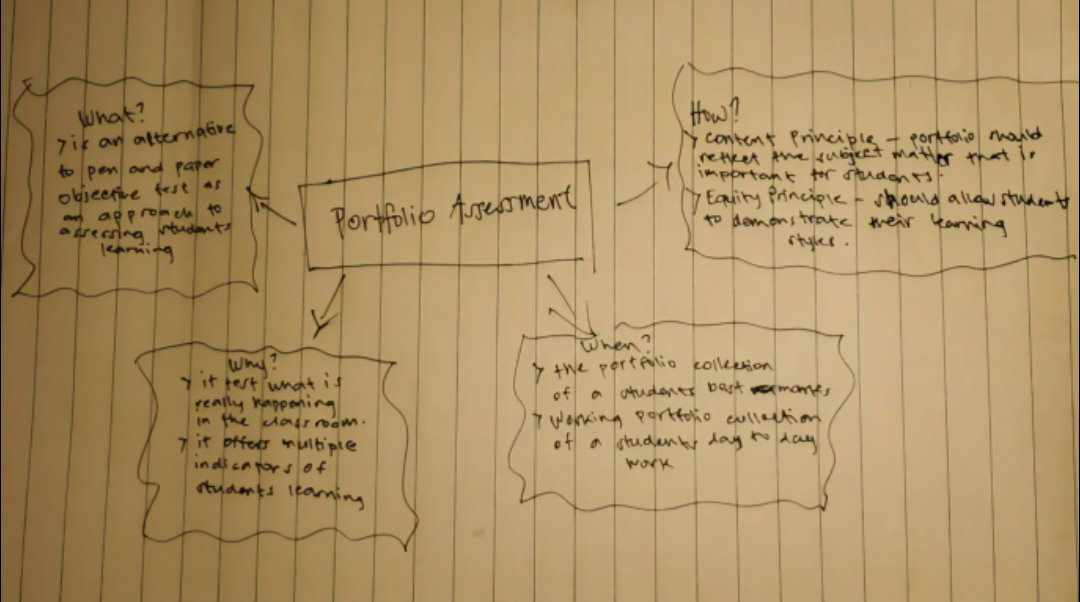 Portfolio Assessment
What?
> is an alternative
to pen and paper
objective test as
an approach to
assessing students
learning
How?
> content Principle - portfolio should
reflect the subject matter that is
important for students.
> Equity Principle - should allow students
to demonstrate their learning
styles.
Why?
> it test what is
really happening
in the classroom.
> it offers multiple
indicators of
students learning
When?
> the portfolio collection
of a students best
> Working portfolio collection
of a students day to day
work